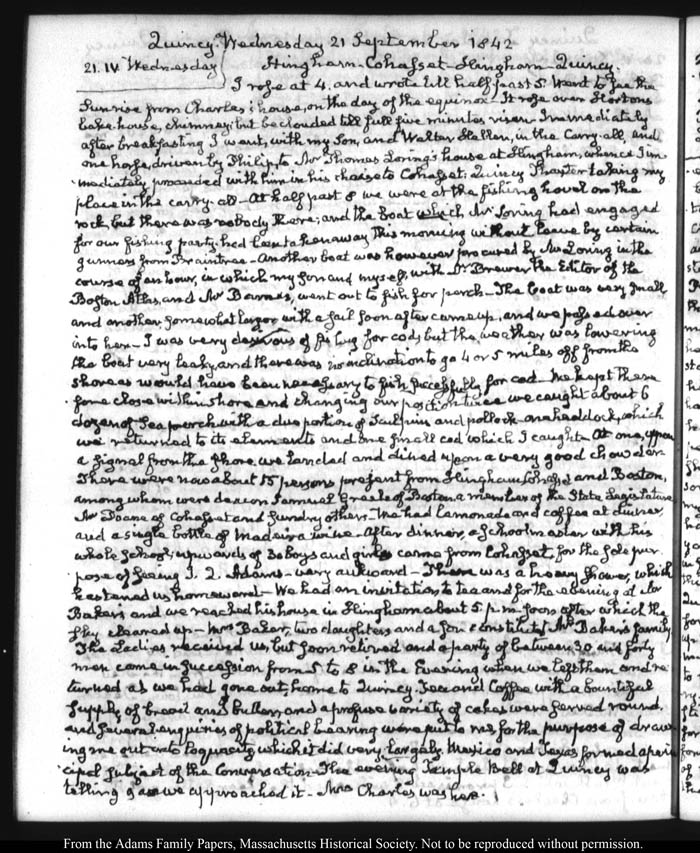 Quincy. Wednesday 21 September 1842
21. IV. Wednesday Hingham-Cohasset-Hingham-Quincy.
I rose at 4. and wrote till half past 5. Went to see the
Sunrise from Charles's house, on the day of the equinox. It rose over Horton's
bake-house, chimney; but beclouded till full five minutes risen. Immediately
after breakfasting I went, with my Son, and Walter Hellen, in the Carry-all, and
one horse, driven by Philip, to Mr Thomas Loring's house at Hingham, whence I im
mediately proceeded with him in his chaise to Cohasset; Quincy Thaxter taking my
place in the carry-all- At half past 8 we were at the fishing hovel on the
rock, but there was nobody there; and the boat which Mr Loring had engaged
for our fishing party had been taken away this morning without leave by certain
gunners from Braintree- Another boat was however procured by Mr Loring in the
course of an hour, in which my Son and myself, with Dr Brewer the Editor of the
Boston Atlas, and Mr Barnes, went out to fish for perch- The boat was very small
and another, somewhat larger with a sail soon after came up, and we passed over
into her- I was very desirous of fishing for cod, but the weather was lowering
the boat very leaky, and there was no inclination to go 4 or 5 miles off from the
shore as would have been necessary to fish successfully for cod- We kept there
fore close within shore and changing our position we caught about 6
dozen of Sea perch with a due portion of Sculpins and pollock- one haddock, which
we returned to its elements and one small cod which I caught- At one, upon
a signal from the shore, we landed and dined upon a very good chowder.
There were now about 15 persons present from Hingham Cohasset and Boston,
among whom were deacon Samuel Greele of Boston, a member of the State Legislature
Mr Doane of Cohasset and sundry others- We had lemonade and coffee at dinner,
and a single bottle of Madeira wine- After dinner, a Schoolmaster with his
whole School, upwards of 30 boys and girls came from Cohasset, for the sole pur
pose of seeing J. Q. Adams- very awkward- There was a heavy shower, which
hastened us homeward- We had an invitation to tea and for the evening at Mr
Baker's and we reached his house in Hingham about 5 p.m. soon after which the
sky cleared up- Mrs Baker, two daughters and a son constitute Mr Baker's family
The Ladies received us, but soon retired and a party of between 30 and forty
men came in succession from 5 to 8 in the Evening when we left them and re
turned as we had gone out, home to Quincy. Tea and Coffee with a bountiful
supply of bread and butter, and a profuse variety of cakes were served round.
and several enquiries of political bearing were put to me for the purpose of draw
ing me out into loquacity, which it did very largely. Mexico and Texas formed a prin
cipal subject of the conversation- The evening Temple Bell at Quincy was
tolling 9 as we approached it- Mrs Charles was here.
From the Adams Family Papers, Massachusetts Historical Society. Not to be reproduced without permission.